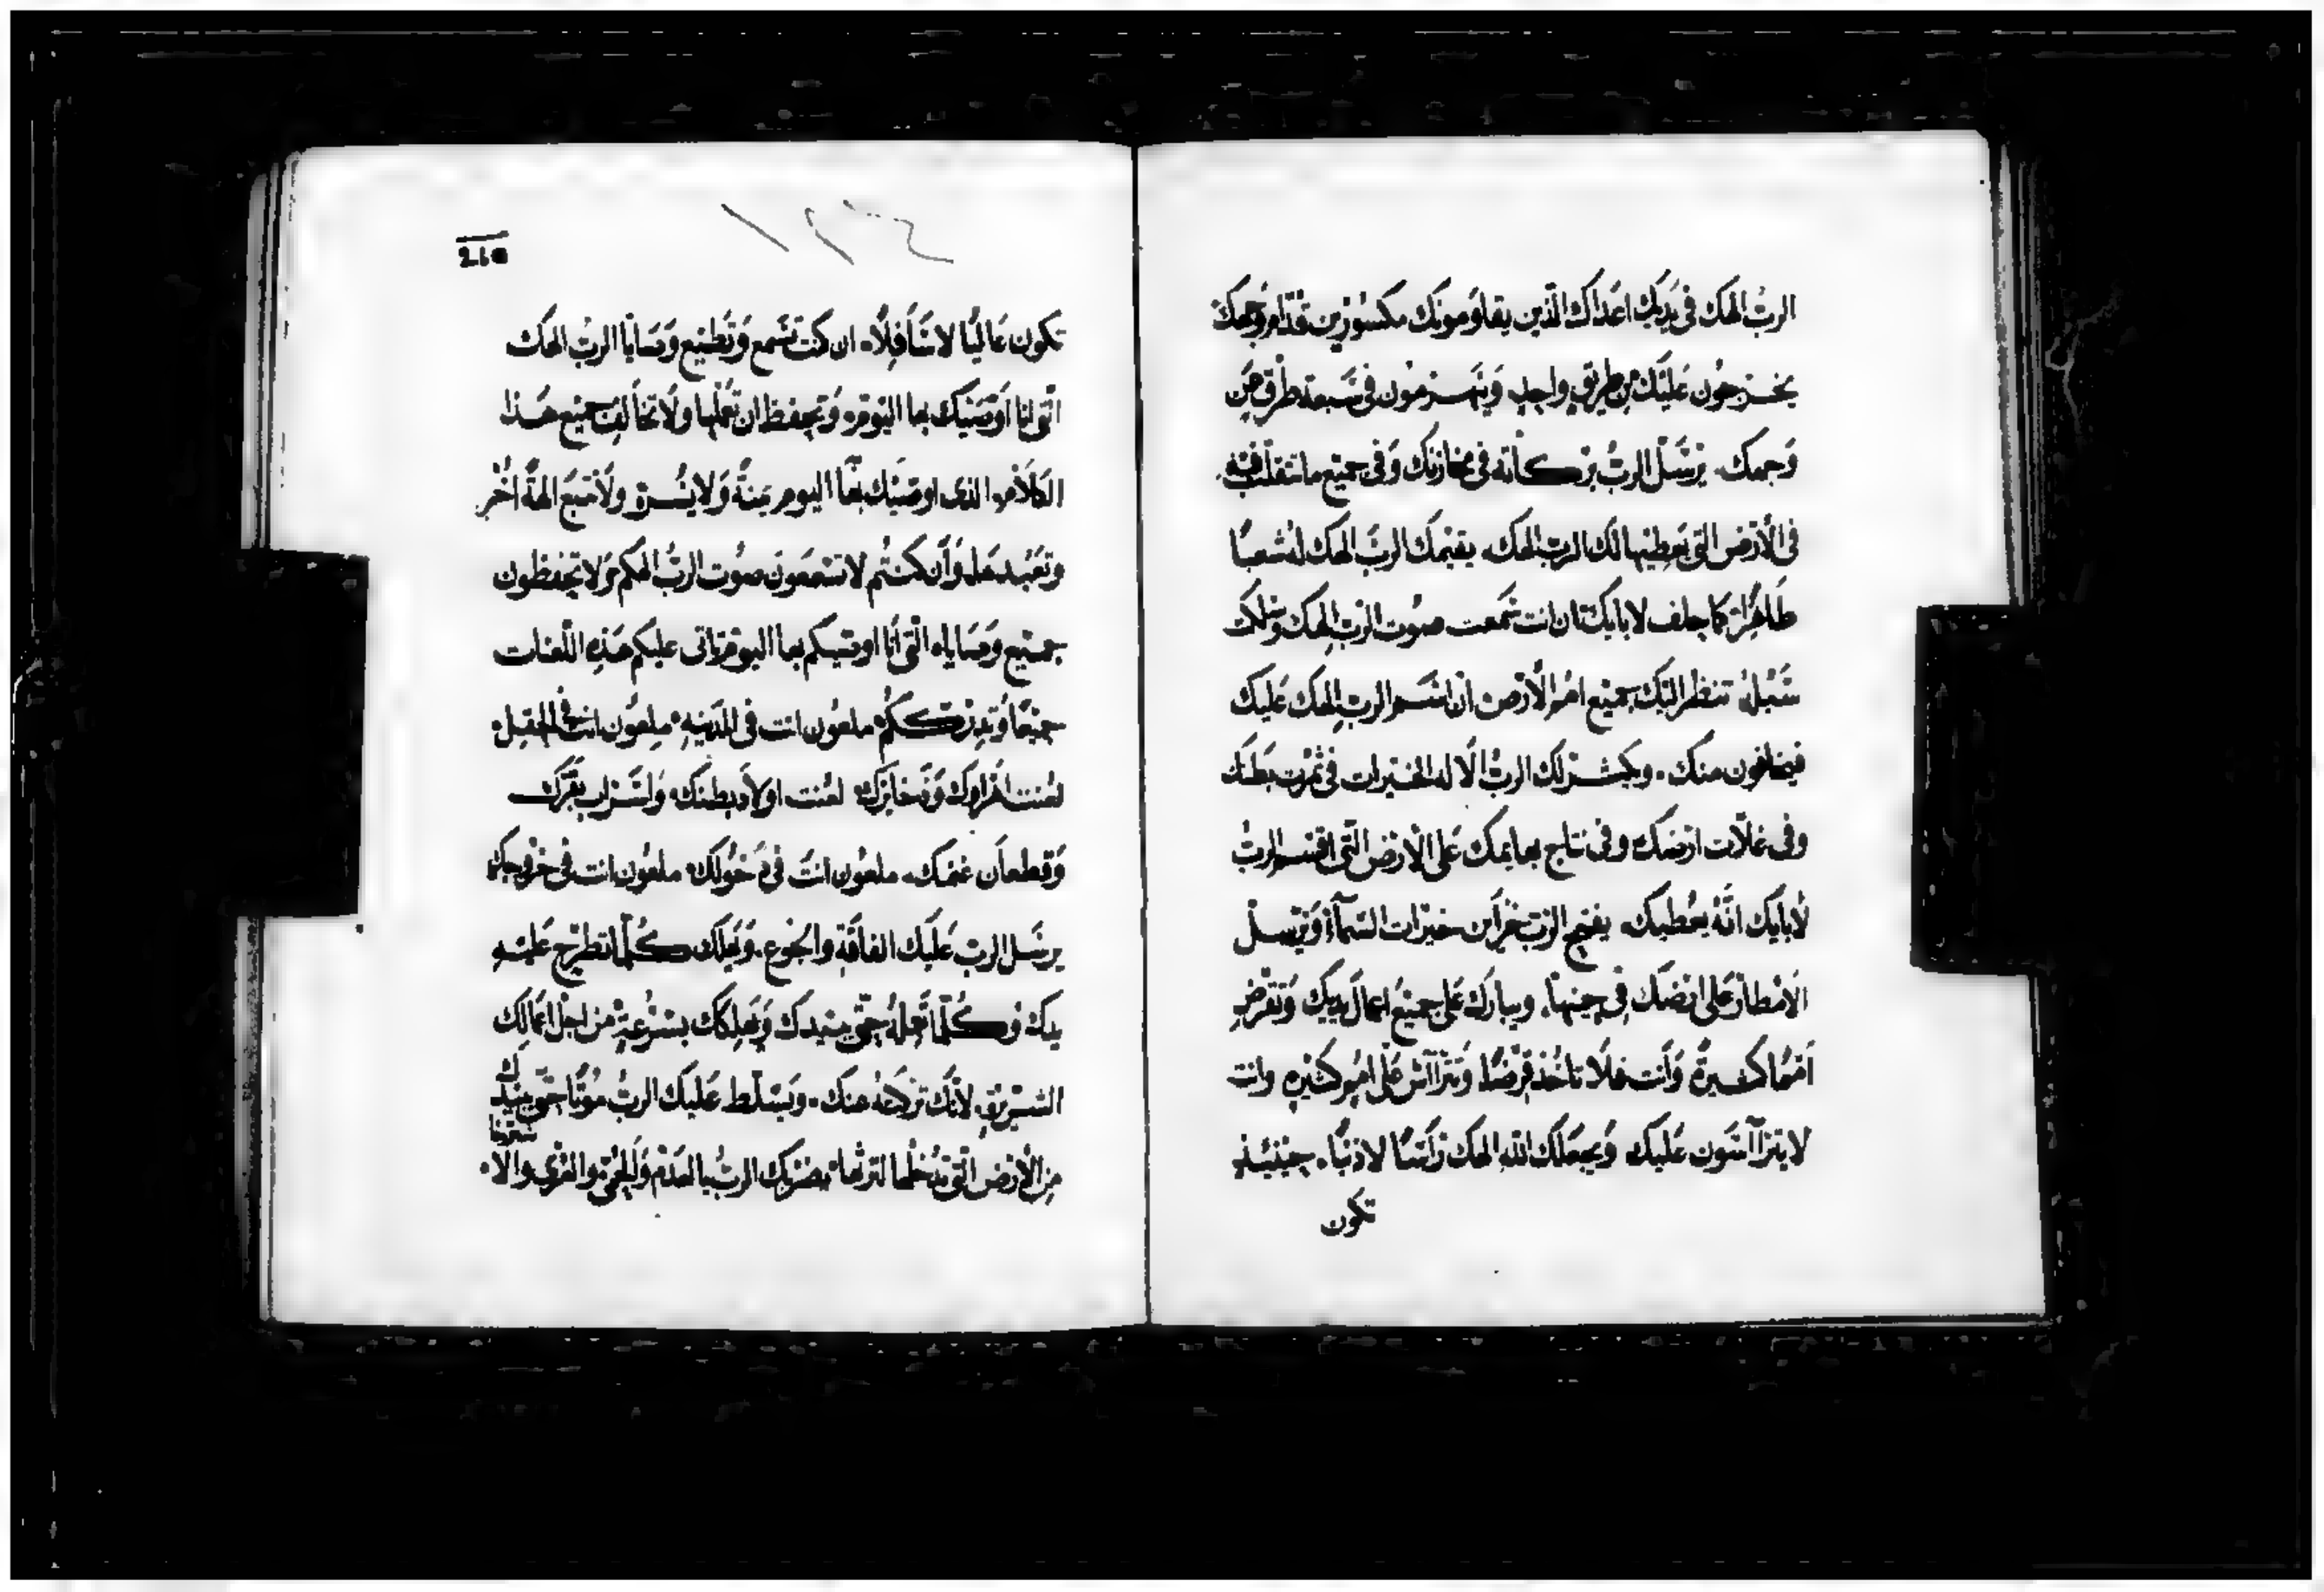 الربُ الهك فى يَديك اعداك الّذين يقاومونك مكسُورين قدّام وَجهك
يخرجُون عَليْك مِن طريق واحدٍ وَينهزمُون فى سَبعة طرق مِن
وَجهك. يرْسَل الربُ بركاته فى مخازنك وَفى جميع ما تتقلب فيْه
فى الأرض التى يعطيْها لك الرب الهك. يقيمك الربَ الهك له شعبًا
طَاهرًا كما حلف لابايك ان انت سمعت صوت الرب الهك وسَلكت
سُبله تنظر اليْك جميْع امم الأرض ان اسْم الرب الهك عَليك
فيخافون منك. ويكثر لك الربُ الاله الخيرات فى ثمرت بطنك
وفى غلاّت ارضك وفى نتاج بهايمك عَلى الأرض الّتى اقسم الربُ
لأبايك انّهُ يعُطيك. يفتح الرَب خزاين خيرات السّمآء وَيرسل
الامْطار عَلى ارضك فى حينها. ويبارك عَلى جميْع اعمال يديك وَتقرض
اممًا كثيرةً وَأنت فلا تاخُذ قرْضًا وَتتراآس عَلى امُم كثيره وانت
لا يتراآسَون عَليك ويَجعَلك الله الهك رَأسًا لا ذنبًا. حينيئذٍ
تكون
210
تكون عَاليًا لا سَافِلاً. ان كنت تسْمع وَتطيْع وَصَايا الربُ الهك
الّتى انا اوَصيْك بها اليْوم. وَتحفظ ان تعْملها ولا تخالف جميْع هذا
الكَلام الذى اوصيْك بها اليوم يمَنةً وَلا يسْرة ولا تتبع الهةً أخُر
وتعَبدها وَأن كنتُم لا تسمعون صوت الربُ الهكم وَلا تحفظون
جميْع وَصَاياه الّتى أنا اوصيكم بها اليوم تاتى عليكم هَذِه اللّعنات
جميْعًا وَتدرككُم ملعُون انت فى المدينهِ ملعُون انت فى الحقل
لعنت اهراوك وَذخايرك لعُنت اولاد بطنك واسْراب بقَرك
وَقطعاَن غنمك. ملعُون انتَ فى دَخُولك ملعُون انت فى خرُوجك
يرسَل الرب عَليَك الفاقةِ والجُوع. وَيهلك كُلّما تطرح عَليْه
يدك وكُلّما تعَملهُ حتّى يبيدك وَيهلكك بسُرْعةٍ من اجْل اعمالك
الشريْرةِ. لأنّك تركتهُ منك. وَيسَلّط عَليك الربُ موتًا حتّى يبيدك
من الأرض الّتى تدخُلها لترثها يضربك الربُ بالعَدم وَالحمى والعُرى والا